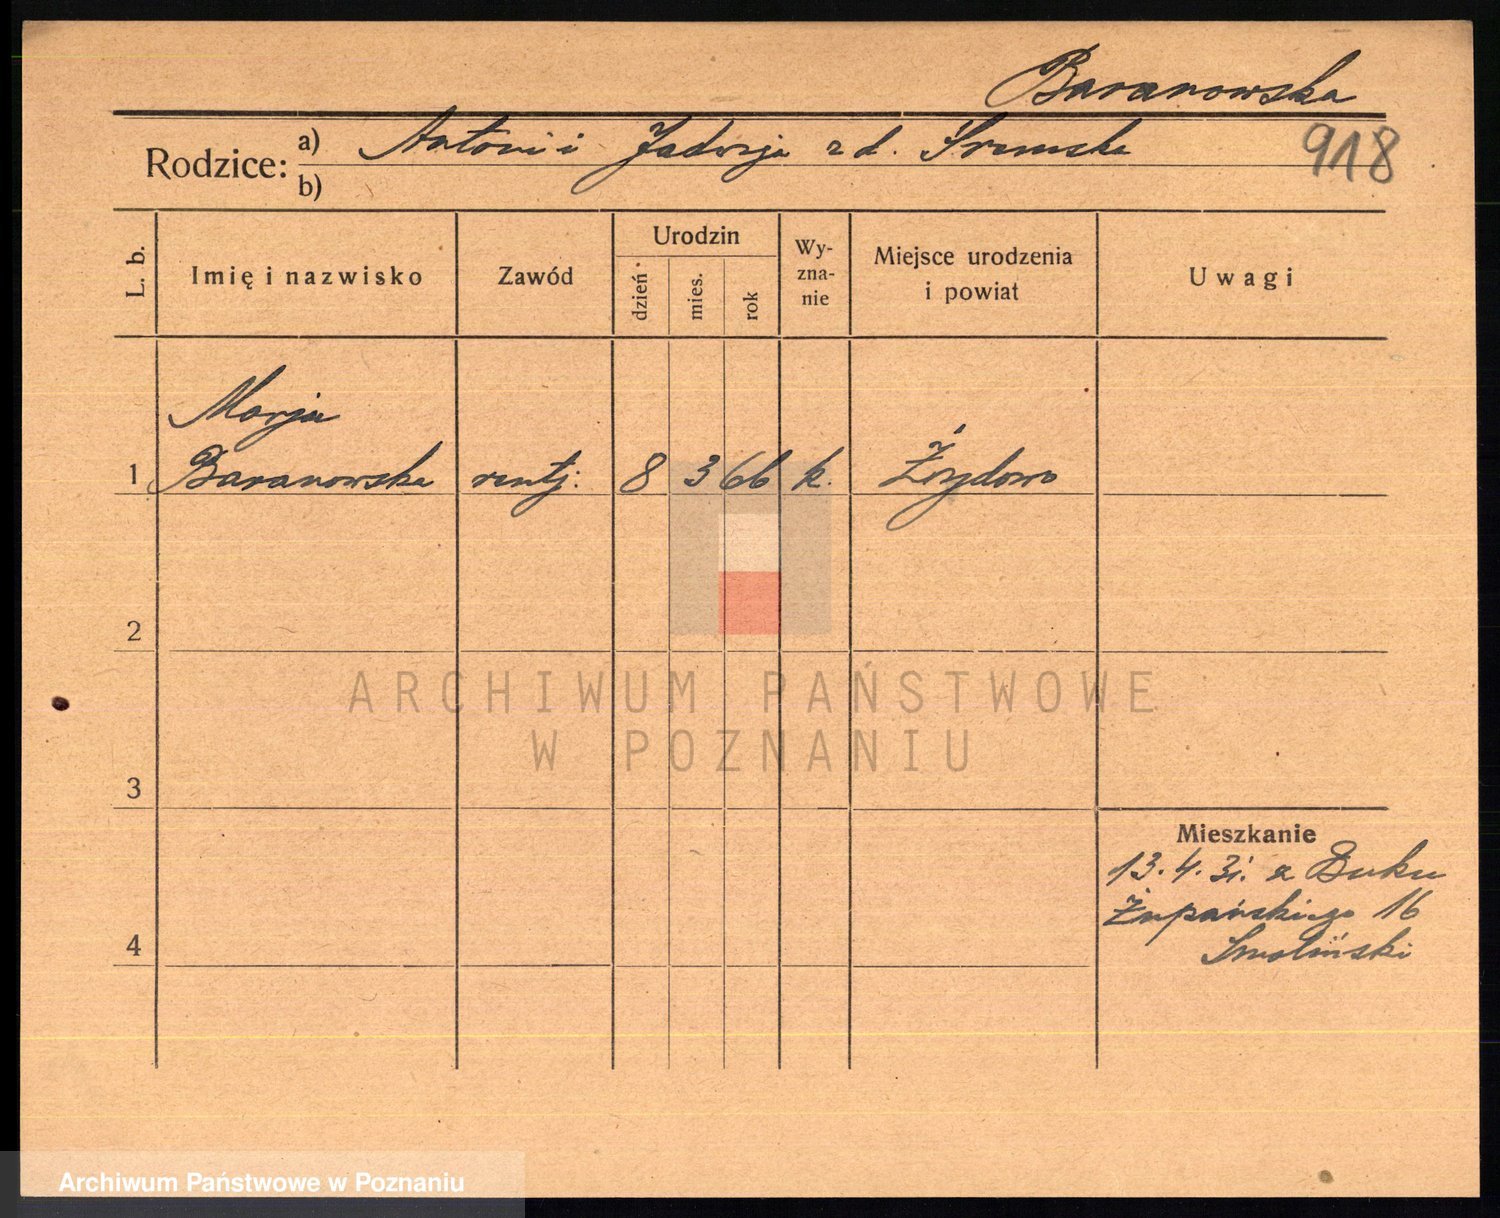 Baranowska
918
Rodzice: a) Antoni i Jadwiga z d. Śremska
b)
L. b.
Imię i nazwisko
Zawód
Urodzin
dzień
mies.
rok
Wy-
zna-
nie
Miejsce urodzenia
i powiat
Uwagi
Marja
1 Baranowska rentj: 8 3 66 k.
2
3
4
Mieszkanie
13.4.31. z Buku
Żupańskiego 16
Smoliński
ARCHIWUM PAŃSTWOWE
W POZNANIU
Archiwum Państwowe w Poznaniu